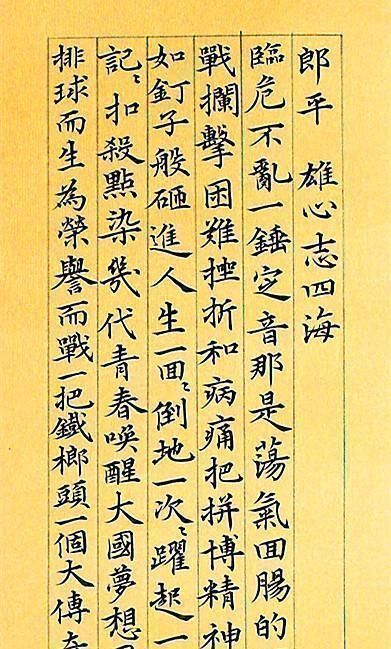 郎平 雄心志四海
臨危不亂一錘定音那是蕩氣囬腸的
戰攔擊困難挫折和病痛把拼博精神
如釘子般砸進人生一囬〻倒地一次〻躍起一
記〻扣殺點染幾代青春喚醒大國夢想
排球而生為榮譽而戰一把鐵榔頭一個大傳奇